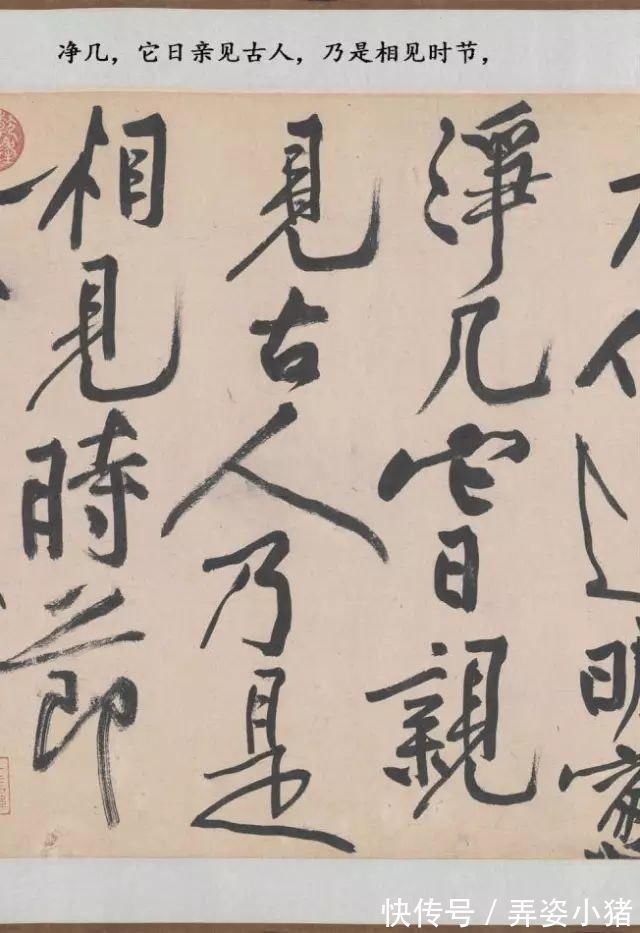 净几，它日亲见古人，乃是相见时节，
淨几它日親
見古人乃是
相見時節
快传号 / 弄姿小猪